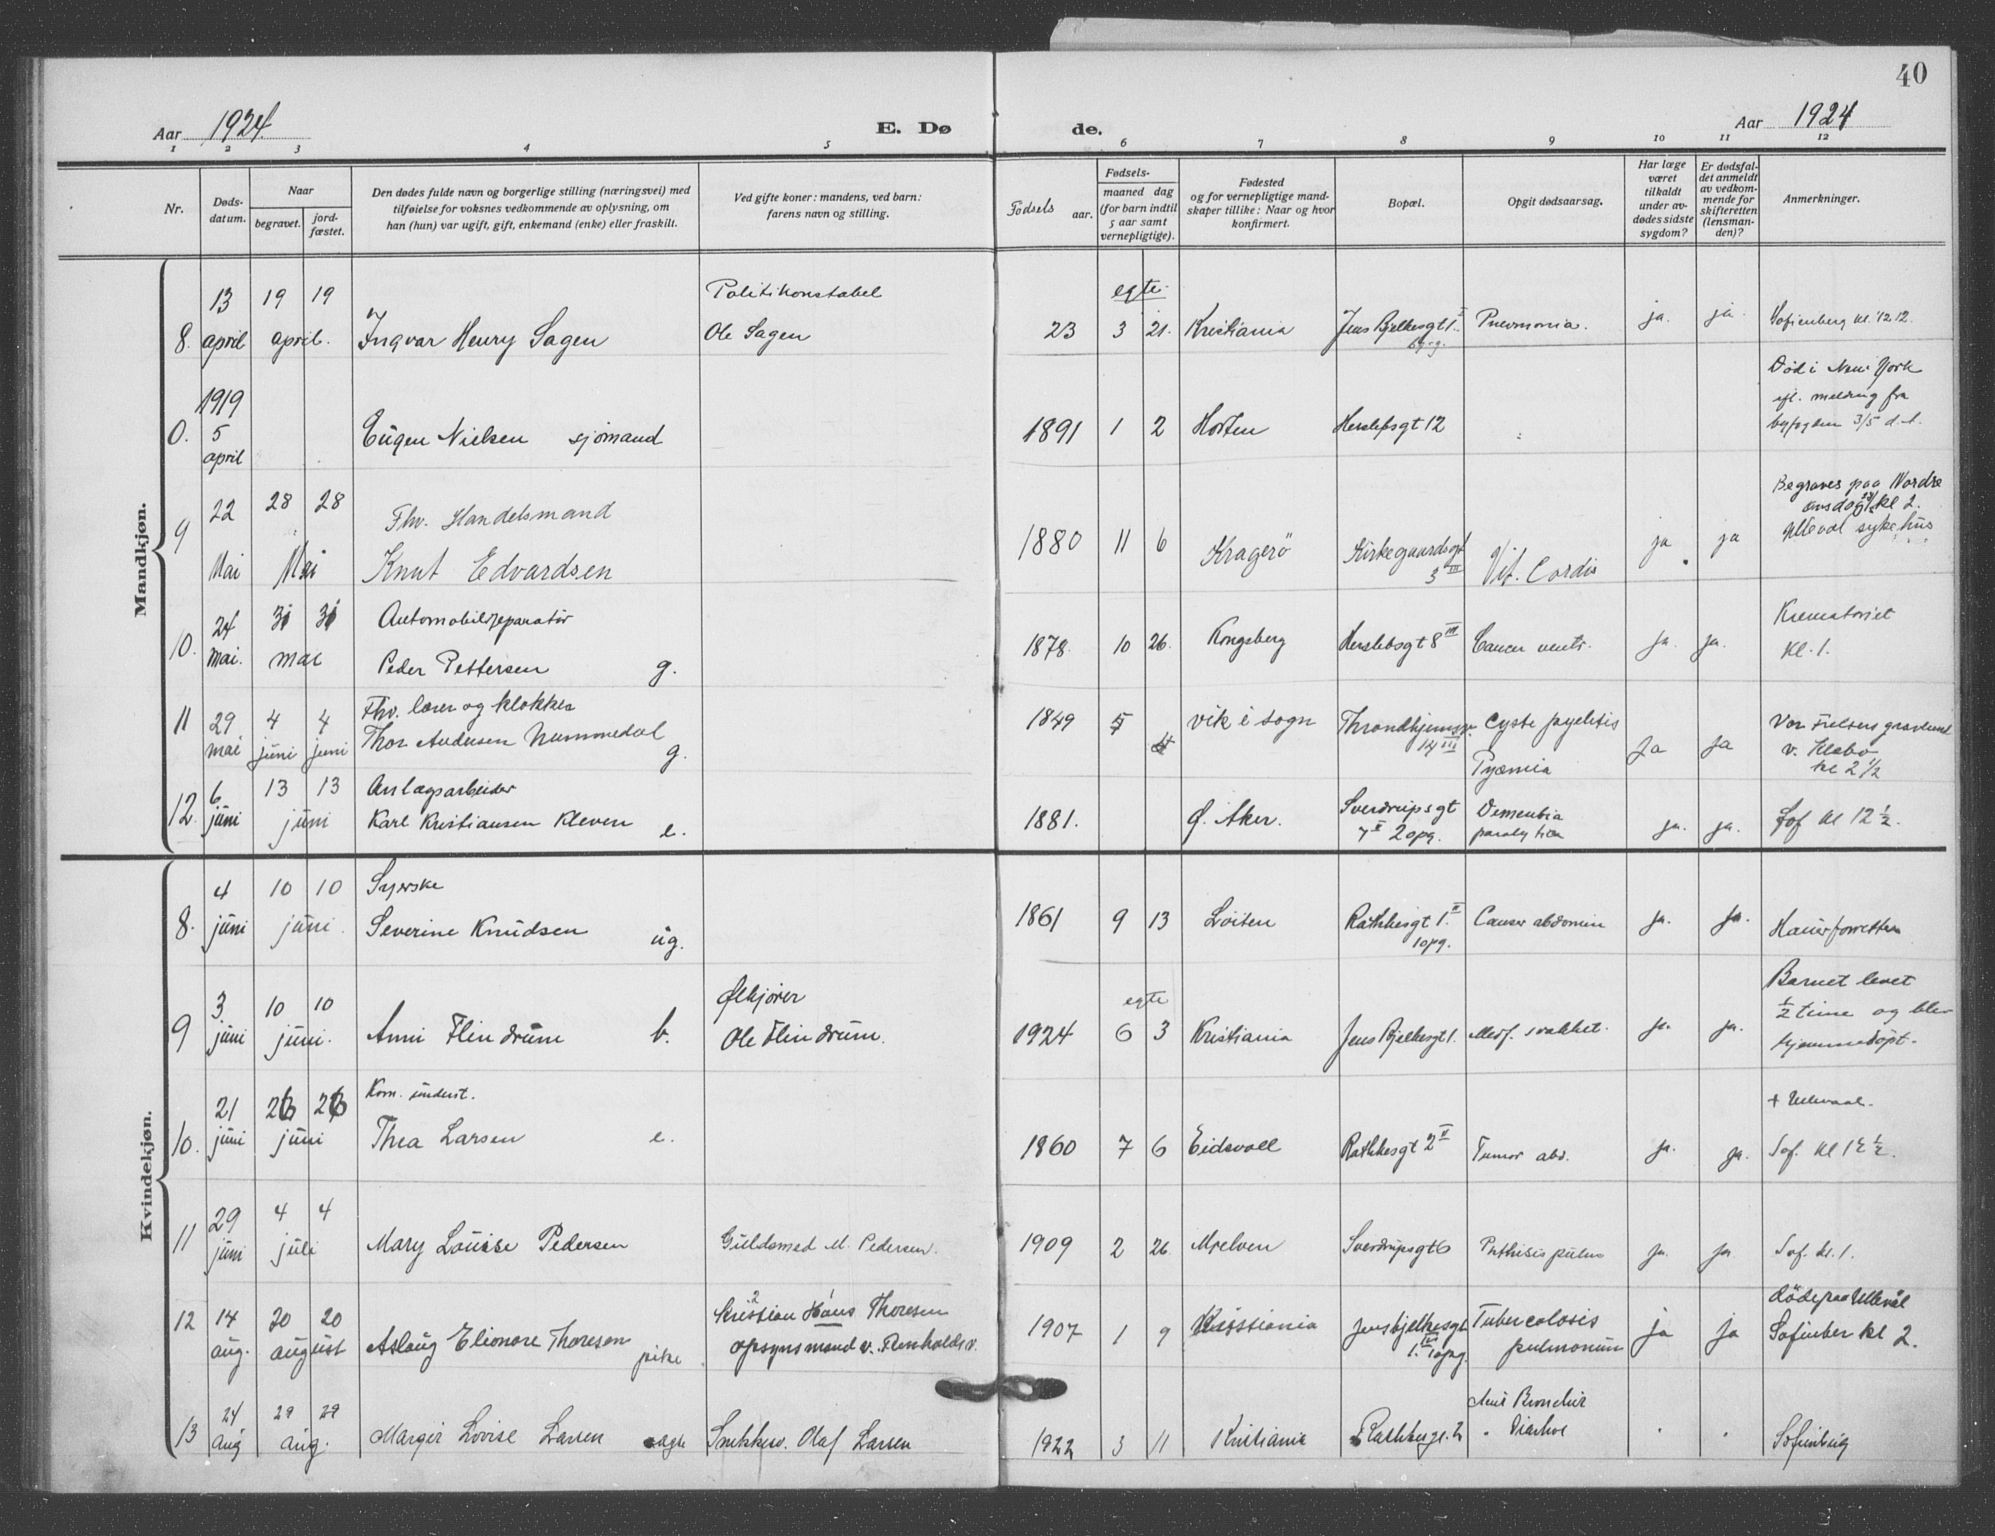 40
Aar 1924
E. Dø
de.
Aar 1924
1 2 3 4 5 6 7 8 9 10 11 12
Nr.
Døds-
datum.
Naar
begravet.
jord-
fæstet.
Den dødes fulde navn og borgerlige stilling (næringsvei) med
tilføielse for voksnes vedkommende av oplysning, om
han (hun) var ugift, gift, enkemand (enke) eller fraskilt.
Ved gifte koner: mandens, ved barn:
farens navn og stilling.
Fødsels aar.
Fødsels-
maaned dag
(for barn indtil
5 aar samt
vernepligtige).
Fødested
og for vernepligtige mand-
skaper tillike: Naar og hvor
konfirmert.
Bopæl.
Opgit dødsaarsag.
Har læge
været
tilkaldt
under av-
dødes sidste
sygdom?
Er dødsfal-
det anmeldt
av vedkom-
mende for
skifteretten
(lensman-
den)?
Anmerkninger.
Mandkjøn.
13 19 19 Politikonstabel egte
8. april april. Ingvar Henry Sagen Ole Sagen 23 3 21. Kristiania Jens Bjelkesgt 1. I Pneumonia. ja. ja. Sofienberg kl. 12 12.
1919 Død i New York
0. 5 Eugen Nielsen sjømand 1891 1 2 Horten Herslebsgt 12 efl. meldng fra
april byfogden 3/5 d.å.
22 28 28 Fhv. Handelsmand Begraves paa Nordre
onsdag 28/5 kl 2.
9 Mai Mai Knut Edvardsen 1880 11 6 Kragerö Kirkegaardsgt 3 III Vit. Cordis ja ja Ulleval sykehus
24 31 31 Automobilreparatør Krematoriet
10. mai. mai Peder Pettersen g. 1878. 10 26. Kongsberg Herslebsgt 8 III Cancer ventr. ja. ja. kl. 1.
11 29 4 4 Fhv. lærer og klokker 1849 5 vik i sogn Throndhjemsv. Cyste pyelitis Vor Frelsers gravlund
mai juni juni Thor Andersen Nummedal g. 14 III Pyæmia ja ja v. Hlebo
kl 2 1/2
6 13 13 Anlægsarbeider Sverdrupsgt Dementia
12. juni juni Karl Kristiansen Kleven e. 1881. Ø. Aker. 7 II 2 opg. paralytica ja. ja. Sof kl 12 1/2.
Kvindekjøn.
4 10 10 Syerske
8. juni juni. Severine Knudsen ug. 1861 9 13 Løiten Rathkesgt 1. II Cancer abdomin ja. ja.
1 opg.
3 10 10 Ølkjører egte Barnet levet
9 juni juni. Anni Flindrum b. Ole Flindrum. 1924 6 3 Kristiania Jens Bjelkesgt 1. Medf. svakhet. ja. ja. 1/2 time og blev
hjemmedöpt.
21 26 26 Kom. underst. + Ullevaal.
10. juni juni Thea Larsen e. 1860 7 6 Eidsvoll Rathkesgt 2 II Tumor abd. ja. ja. Sof. kl 12 1/2.
29 4 4
11 juni juli Mary Louise Pedersen Guldsmed M. Pedersen. 1909 2 26 Sverdrupsgt 6 Phthisis pulm ja. ja. Sof. kl. 1.
12 14 20 20 2 1 Kristian Hans Thoresen döde paa Ullevål
aug. august Aslaug Elionore Thoresen pike opsynsmand v. Renholdsv. 1907 1 9 Kristiania Jensbjelkesgt Tubercolosis ja ja Sofienber kl 2.
1. III 1 opg. pulmonum
24 29 29 Acut Bronchit
13 aug aug. Margit Lovise Larsen egte Snekkersv. Olaf Larsen 1922 3 11 Kristiania Rathkesgt. 2 Diarhoe Sofienberg